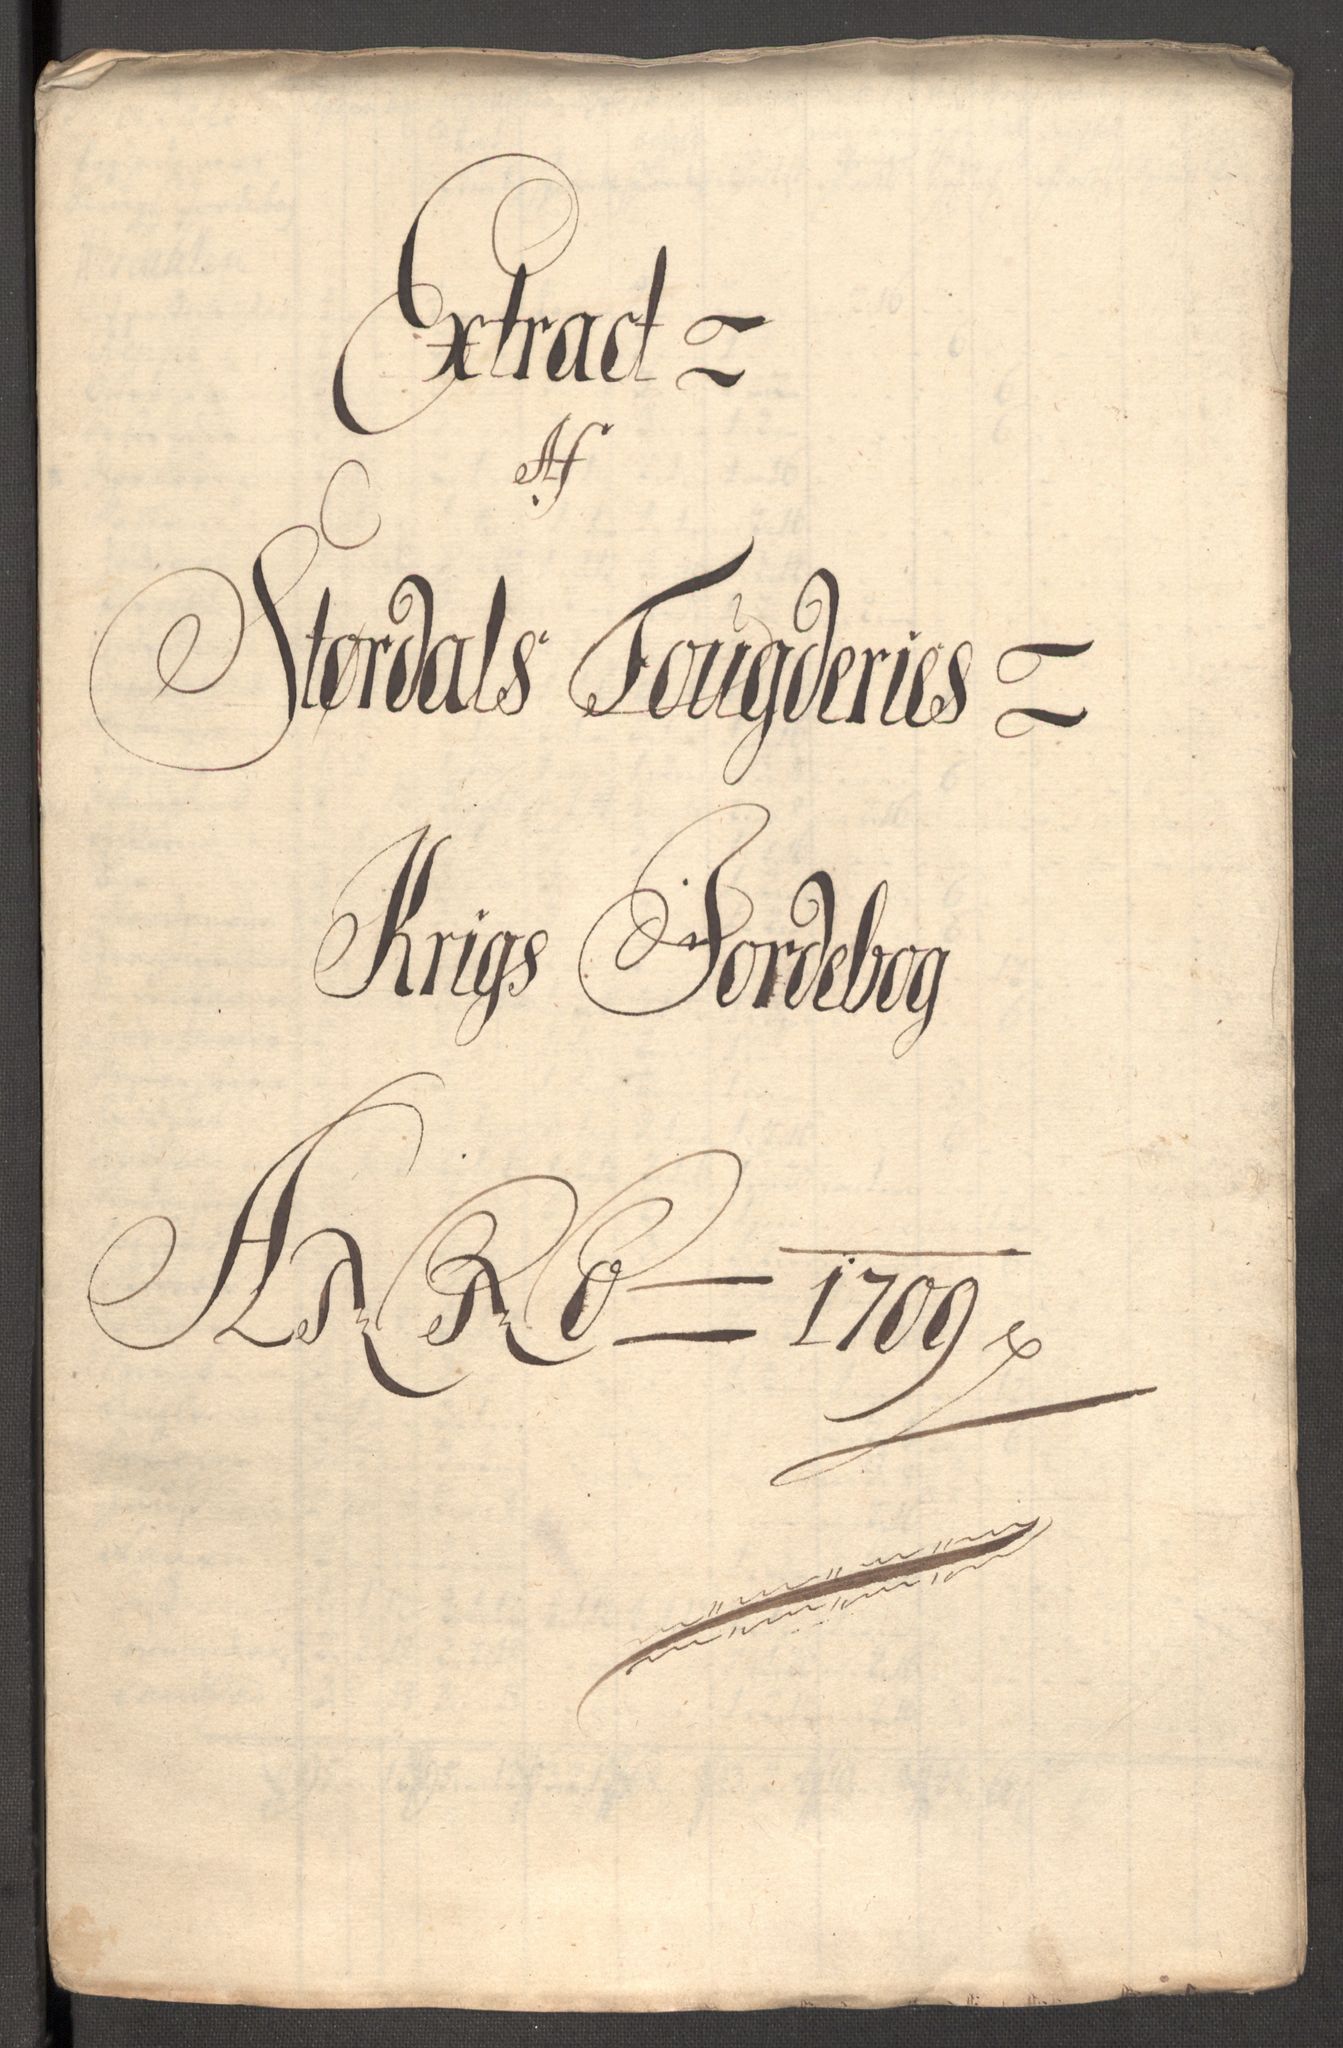 Extract =
Af
Størdals Fougderies =
Krigs Jordebog
ANNO = 1709